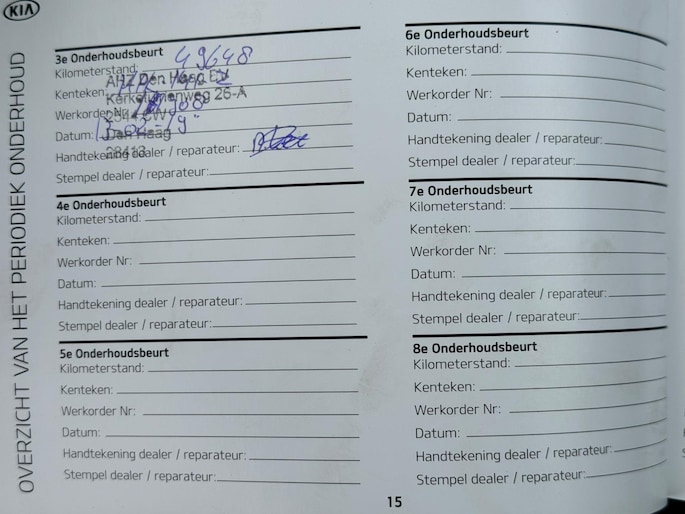 KIA
OVERZICHT VAN HET PERIODIEK ONDERHOUD
3e Onderhoudsbeurt
Kilometerstand: 49648
Kenteken:
AHZ Den Haag BV
Werkorder Nr:
Kerketuinenweg 26-A
Datum:
Den Haag
Handtekening dealer / reparateur:
28413
Stempel dealer / reparateur:
4e Onderhoudsbeurt
Kilometerstand:
Kenteken:
Werkorder Nr:
Datum:
Handtekening dealer / reparateur:
Stempel dealer / reparateur:
5e Onderhoudsbeurt
Kilometerstand:
Kenteken:
Werkorder Nr:
Datum:
Handtekening dealer / reparateur:
Stempel dealer / reparateur:
6e Onderhoudsbeurt
Kilometerstand:
Kenteken:
Werkorder Nr:
Datum:
Handtekening dealer / reparateur:
Stempel dealer / reparateur:
7e Onderhoudsbeurt
Kilometerstand:
Kenteken:
Werkorder Nr:
Datum:
Handtekening dealer / reparateur:
Stempel dealer / reparateur:
8e Onderhoudsbeurt
Kilometerstand:
Kenteken:
Werkorder Nr:
Datum:
Handtekening dealer / reparateur:
Stempel dealer / reparateur:
15